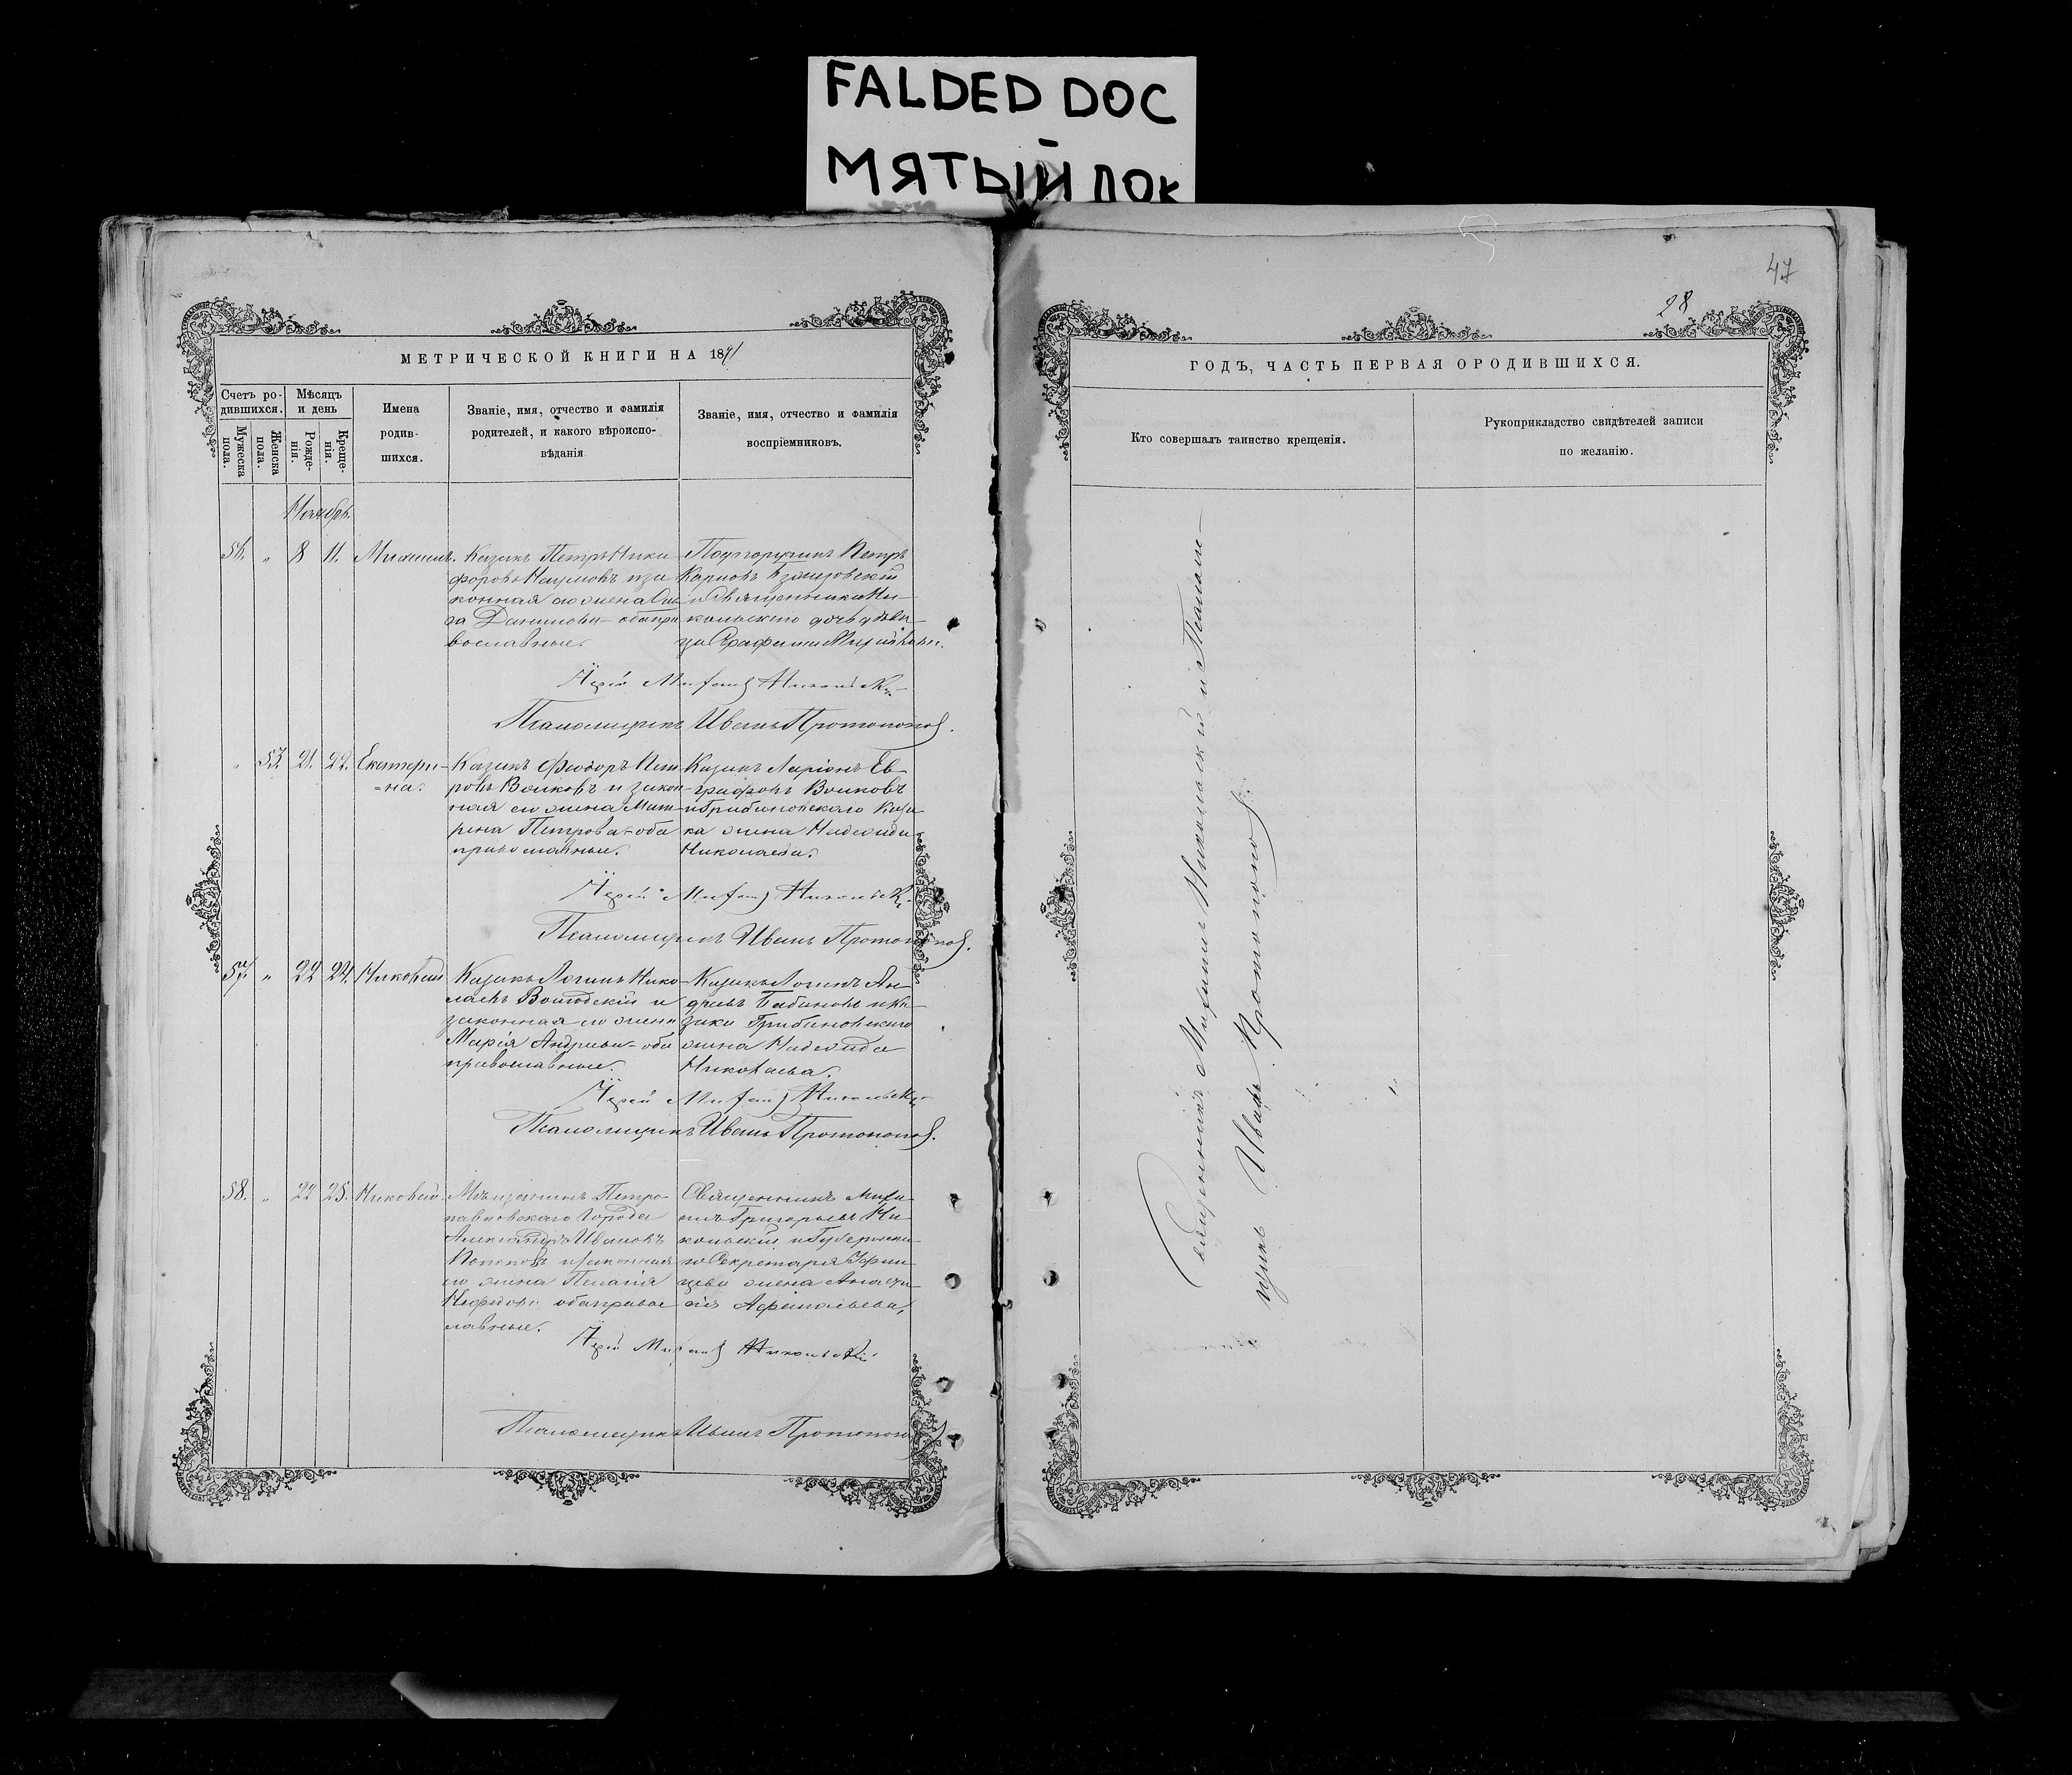 FALDED DOC
МЯТЫЙ ДОК
МЕТРИЧЕСКОЙ КНИГИ НА 1891
Счетъ ро-
дившихся.
Мужеска
пола.
Женска
пола.
Мѣсяцъ
и день
Рожде-
нія.
Креще-
нія.
Имена
родив-
шихся.
Званіе, имя, отчество и фамилія
родителей, и какого вѣроиспо-
вѣданія
Званіе, имя, отчество и фамилія
воспріемниковъ.
Ноябрь.
56. " 8 11. Михаилъ.
Казакъ Петръ Ники
форовъ Наумовъ и за
конная его жена
Данилова - оба пра
вославные.
Подпоручикъ Петръ
Карповъ
и Священника Ни-
кольскаго дочь дѣви
ца Серафима Михайлова.
Іерей Михаилъ Никольскій
Псаломщикъ Иванъ Протопоповъ.
" 53. 21. 22. Екатери-
-на.
Казакъ Феодоръ Пет
ровъ Волковъ и закон
ная его жена Мат
рена Петрова - оба
православные.
Казакъ Ларіонъ Ев-
графовъ Волковъ
и Грибановскаго каза
ка жена Надежда
Николаева.
Іерей Михаилъ Никольскій
Псаломщикъ Иванъ Протопоповъ.
57. " 22 24. Николай
Казакъ Логинъ Нико
лаевъ и
законная его жена
Марія Андреева - оба
православные.
Казакъ Логинъ Ан-
дреевъ Бабиновъ и ка
зака Грибановскаго
жена Надежда
Николаева.
Іерей Михаилъ Никольскій
Псаломщикъ Иванъ Протопоповъ.
58. " 22 25. Николай.
Мѣщанинъ Петро-
павловскаго города
Александръ Ивановъ
Поповъ и законная
его жена Пелагія
Нефедова оба правос
лавные.
Священникъ Миха
илъ Григорьевъ Ни-
кольскій и Губернска
го Секретаря
жена Анаста
сія Афанасьева.
Іерей Михаилъ Никольскій
Псаломщикъ Иванъ Протопоповъ
47
28
ГОДЪ, ЧАСТЬ ПЕРВАЯ ОРОДИВШИХСЯ.
Кто совершалъ таинство крещенія.
Рукоприкладство свидѣтелей записи
по желанію.
Священникъ Михаилъ Никольскій и Псалом-
щикъ Иванъ Протопоповъ.